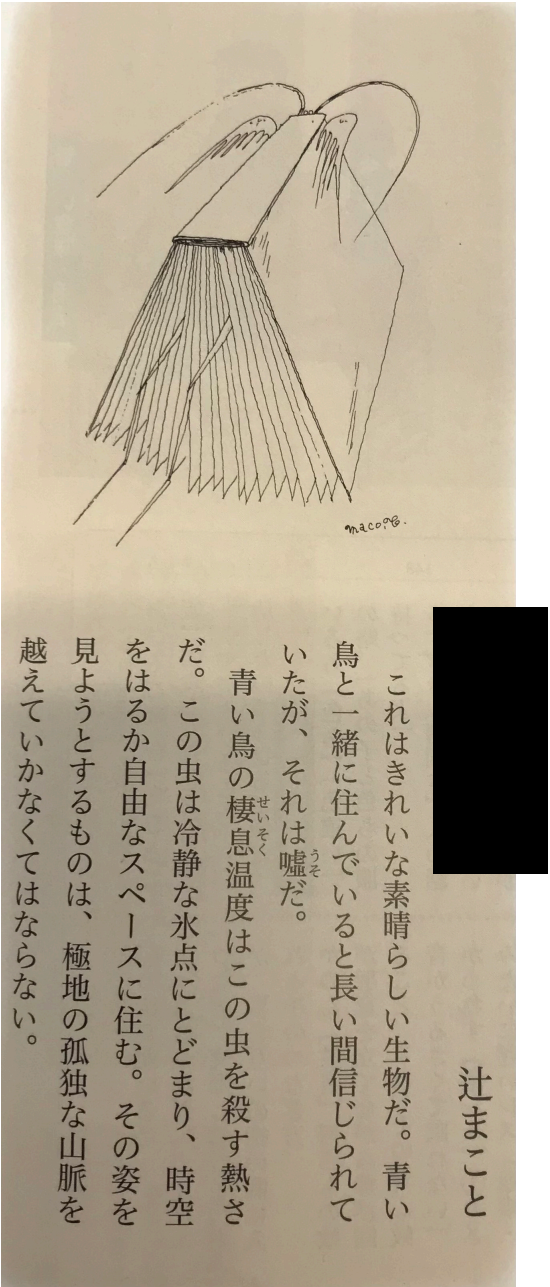 maco.T.
辻まこと
これはきれいな素晴らしい生物だ。青い
鳥と一緒に住んでいると長い間信じられて
いたが、それは嘘だ。
うそ
青い鳥の棲息温度はこの虫を殺す熱さ
せいそく
だ。この虫は冷静な氷点にとどまり、時空
をはるか自由なスペースに住む。その姿を
見ようとするものは、極地の孤独な山脈を
越えていかなくてはならない。